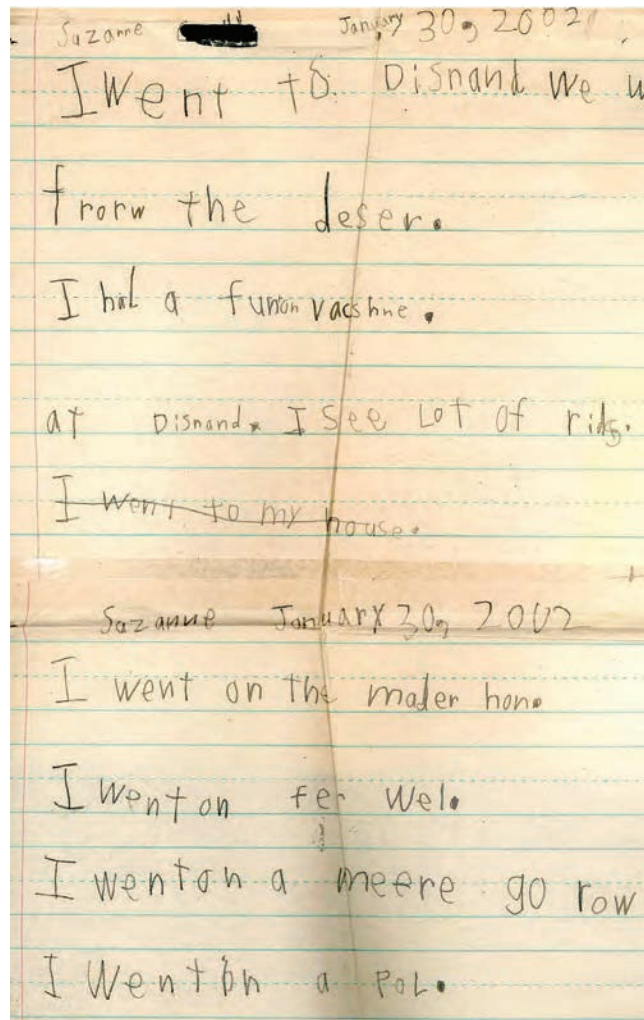 Suzanne January 30, 2002
I Went to Disnand we
frorw the deser.
I had a funon vacshne.
at Disnand. I See Lot of rids.
I went to my house.
Suzanne January 30, 2002
I went on the mader hon.
I went on fer Wel.
I went on a meere go row
I Went on a POL.